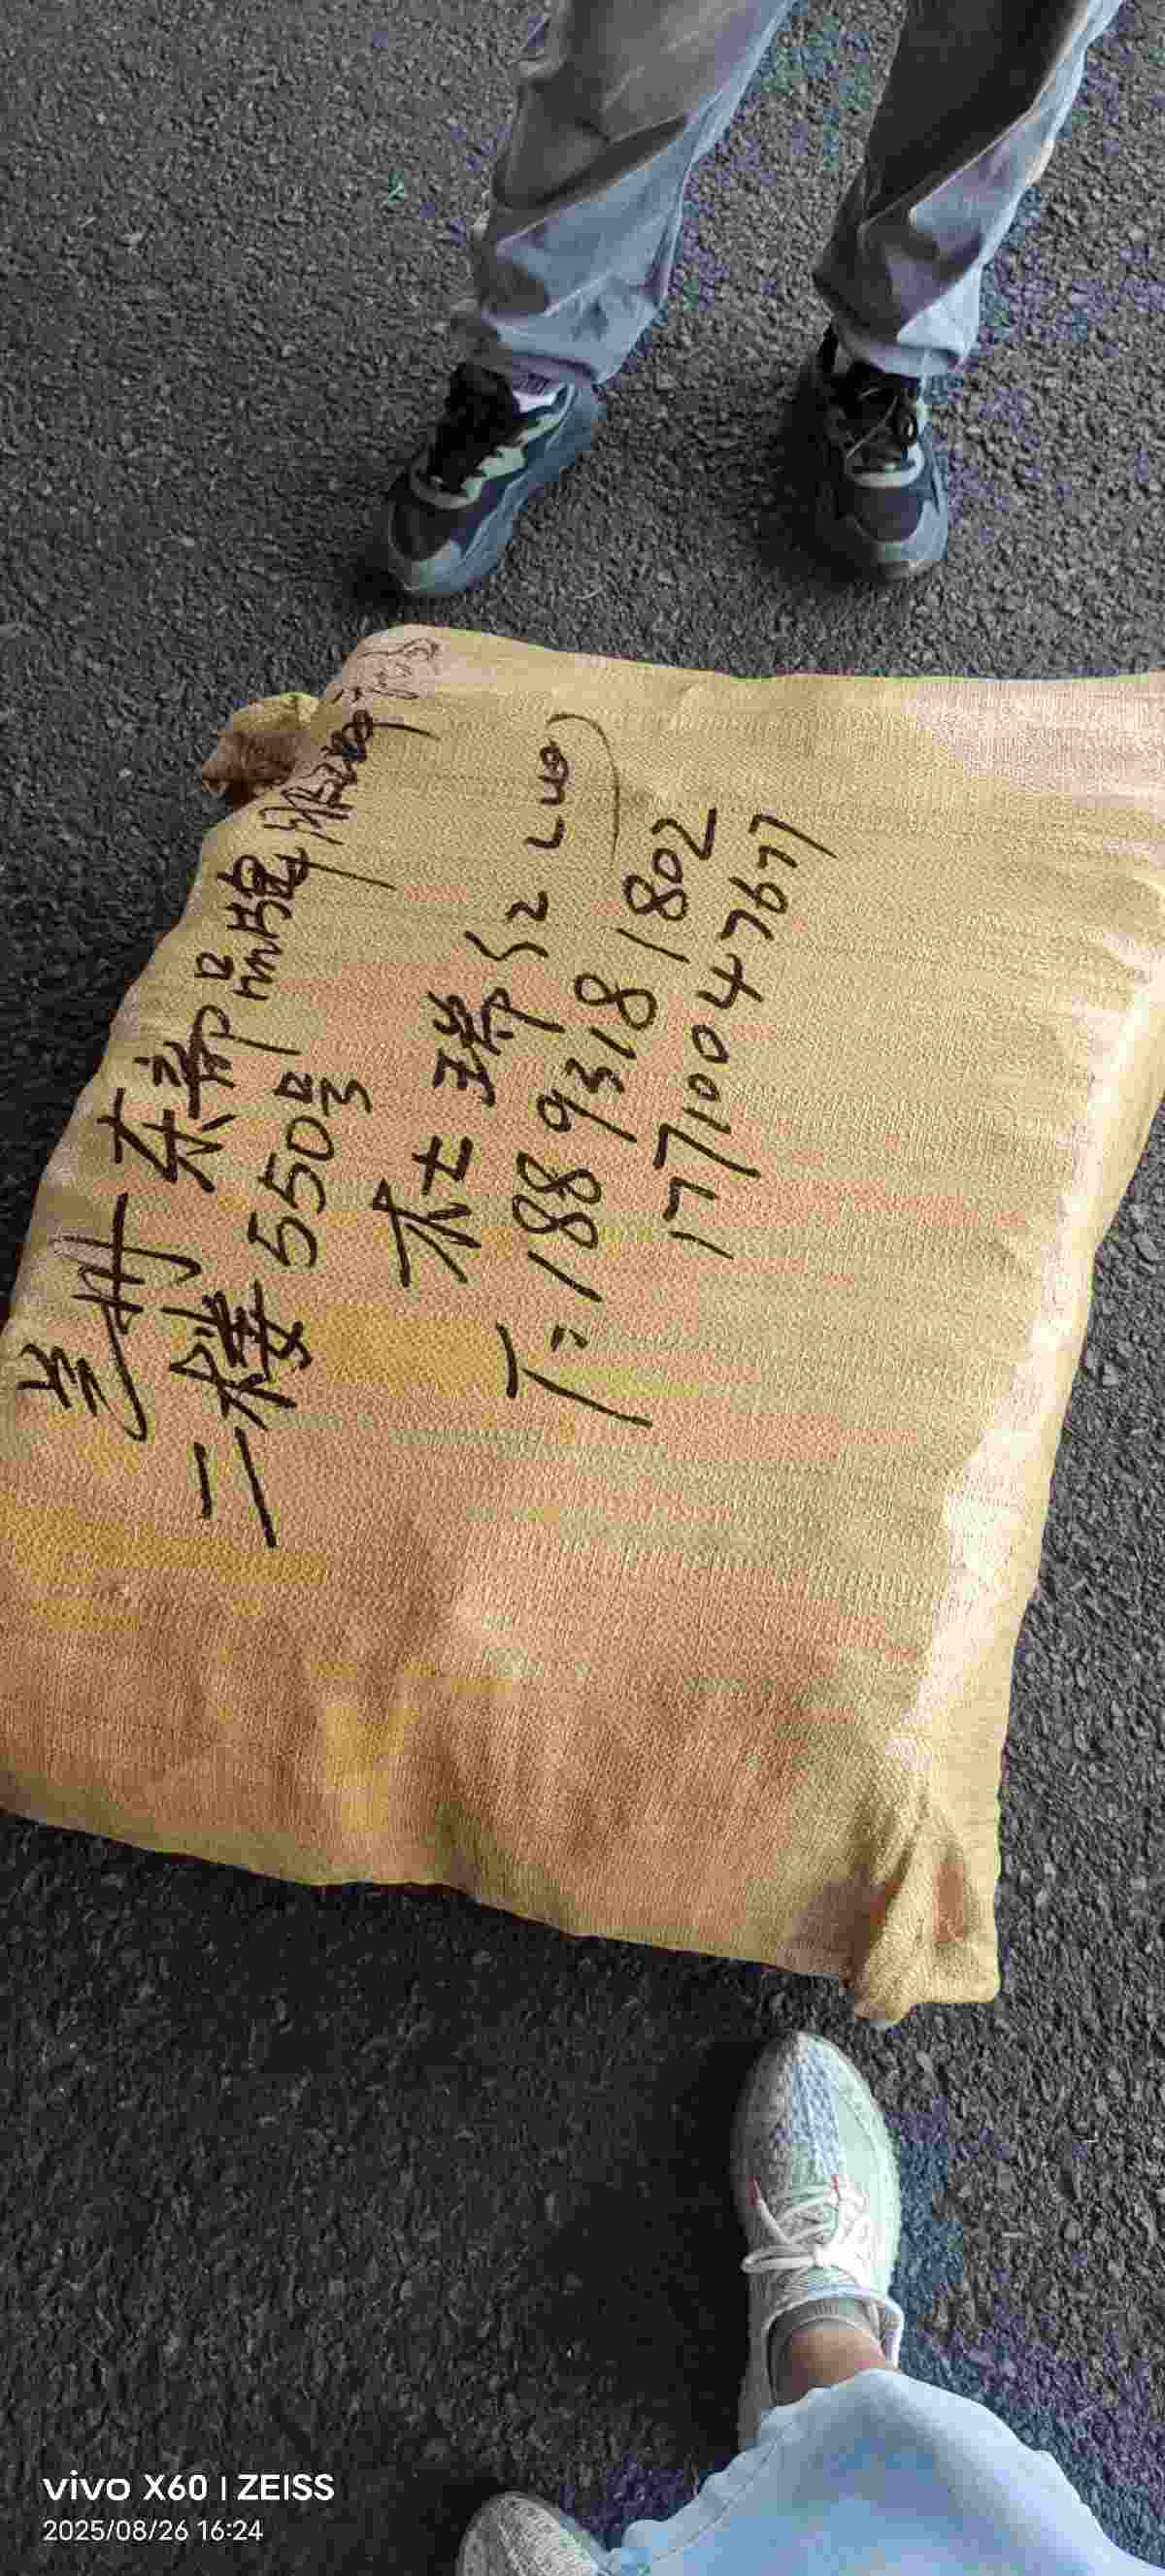 兰州 东部品牌服装
二楼 550号
杜瑞 52 L49
T: 18893181802
17710047677
vivo X60 | ZEISS
2025/08/26 16:24